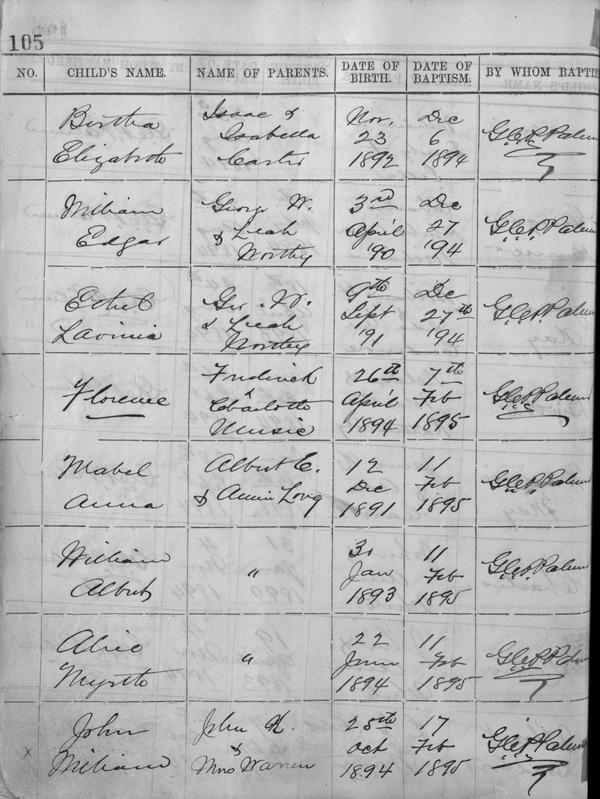 105
NO. CHILD'S NAME. NAME OF PARENTS. DATE OF BIRTH. DATE OF BAPTISM. BY WHOM BAPTIZ
Bertha Isaac & Nov. Dec
Elizabeth Isabella 23 6
Carter 1892 1894
William George W. 3rd Dec
Edgar & Leah April 27
Northey '90 '94
Ethel Geo. W. 9th Dec
Lavinia & Leah Sept 27th
Northey '91 '94
Florence Fredrick 26th 7th
& Charlotte April Feb
Music 1894 1895
Mabel Albert E. 12 11
Anna & Annie Long Dec Feb
1891 1895
William " 31 11
Albert Jan Feb
1893 1895
Alice " 22 11
Myrtle June Feb
1894 1895
John John H. 28th 17
William & Oct Feb
Mrs Warren 1894 1895